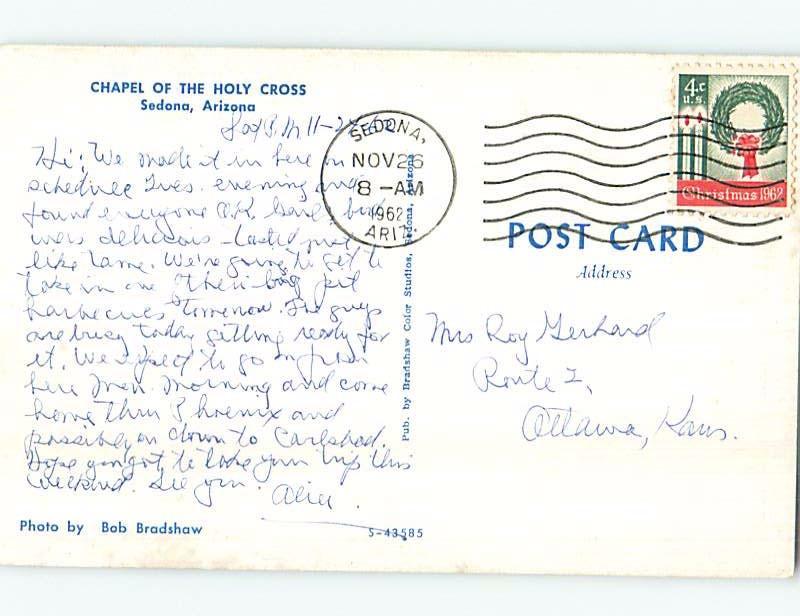 CHAPEL OF THE HOLY CROSS
Sedona, Arizona
Sat P.M 11-24-62
Hi: We made it in here on
schedule Tues. evening and
found everyone O.K. bird
was delicious - tasted just
like tame. We're going to get to
take in one of their big pit
barbecues tomorrow. The guys
are busy today getting ready for
it. We expect to go on from
here Mon. morning and come
home thru Phoenix and
possibly on down to Carlsbad.
Hope you got to take your trip this
weekend. See you.
Alice.
Photo by Bob Bradshaw
S-43585
Pub. by Bradshaw Color Studios, Sedona, Arizona
SEDONA,
NOV 26
8 -AM
1962
ARIZ.
4c
U.S.
Christmas 1962
POST CARD
Address
Mrs Roy Gerhard
Route 2,
Ottawa, Kans.